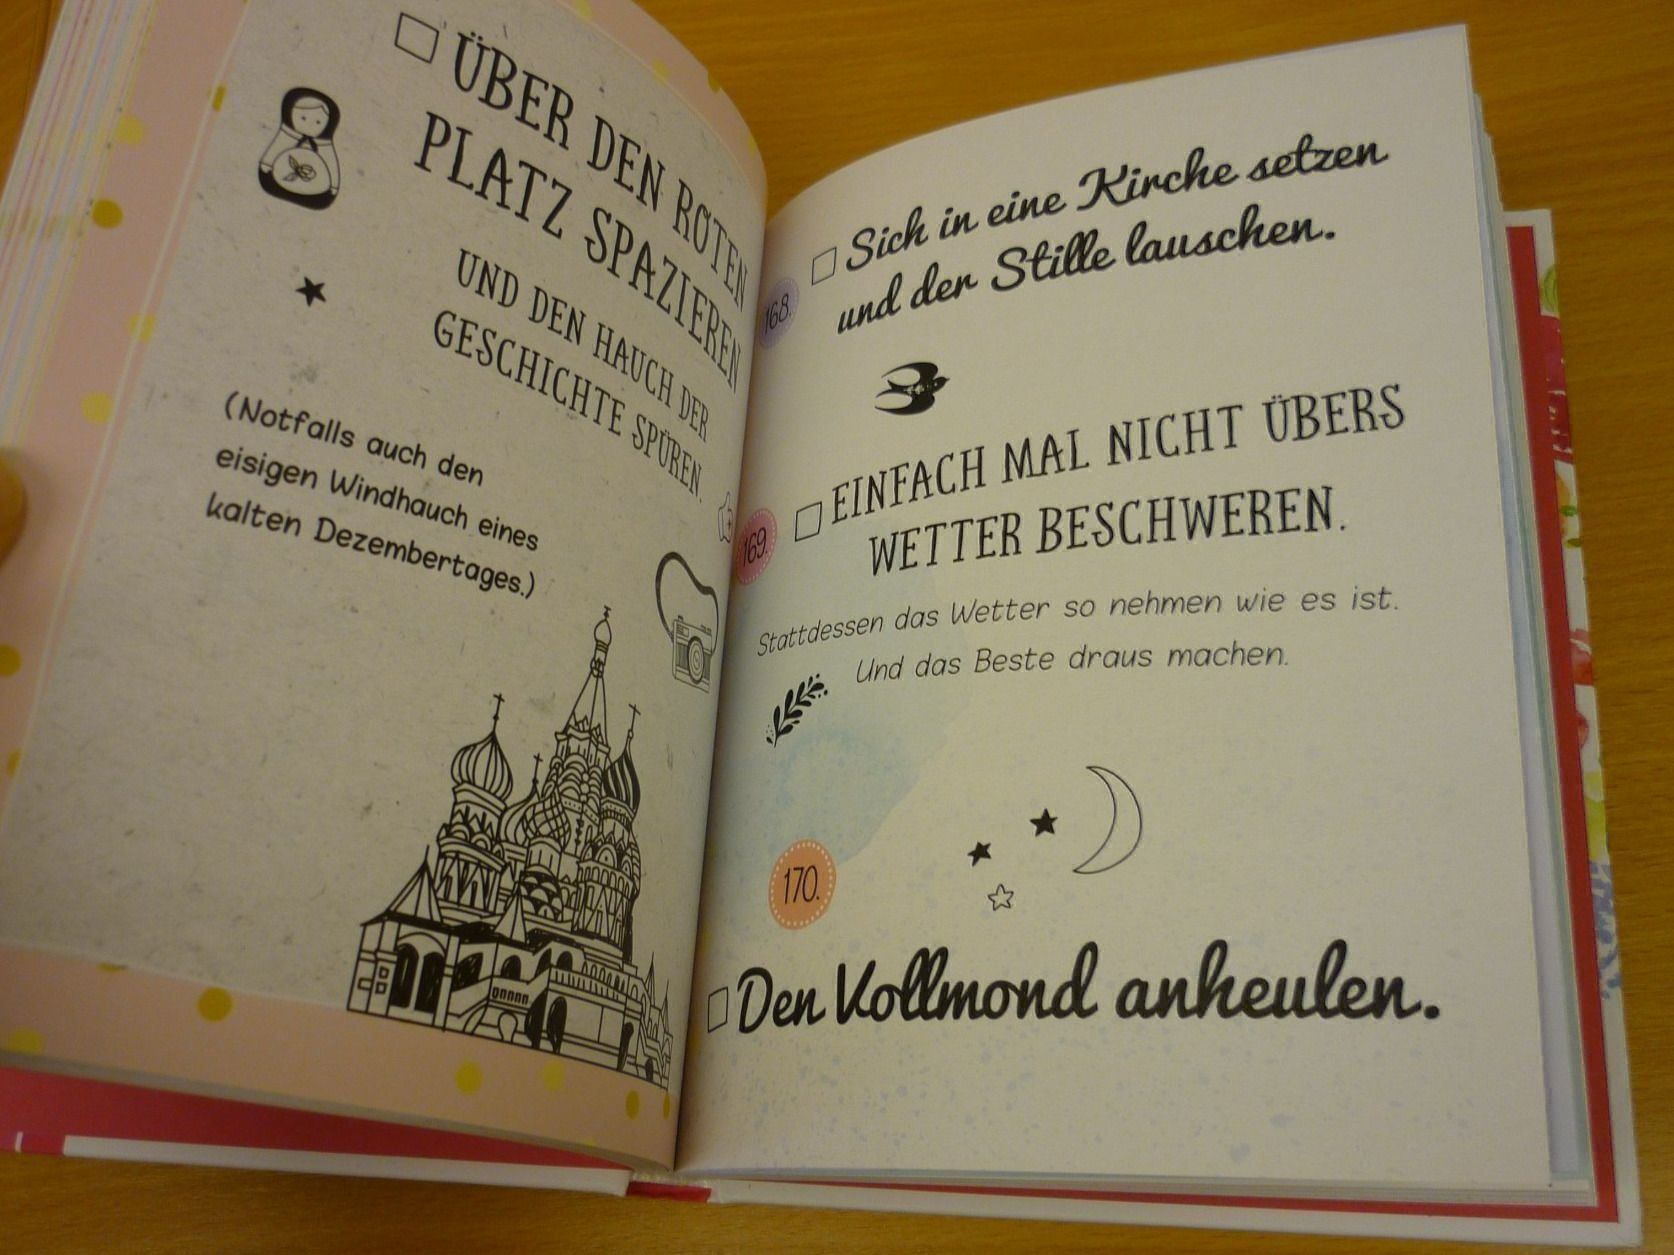 ÜBER DEN ROTEN
PLATZ SPAZIEREN
UND DEN HAUCH DER
GESCHICHTE SPÜREN.
(Notfalls auch den
eisigen Windhauch eines
kalten Dezembertages.)
168.
Sich in eine Kirche setzen
und der Stille lauschen.
169.
EINFACH MAL NICHT ÜBERS
WETTER BESCHWEREN.
Stattdessen das Wetter so nehmen wie es ist.
Und das Beste draus machen.
170.
Den Vollmond anheulen.